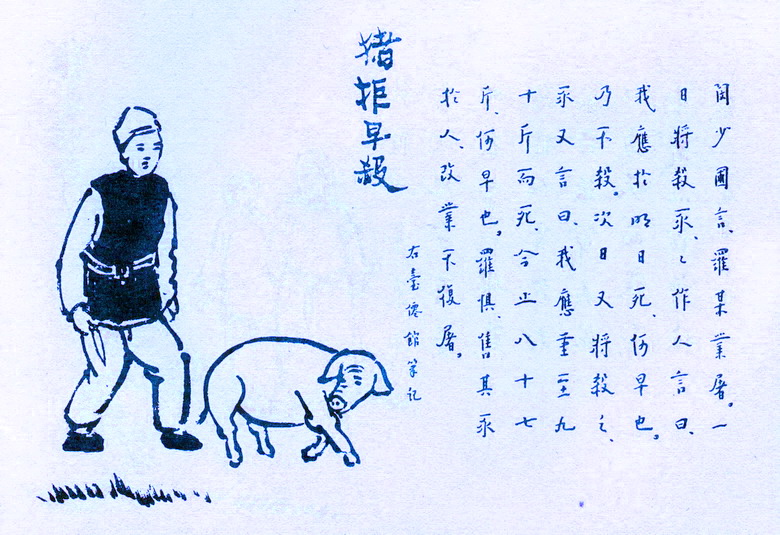 猪拒早殺
閔少圃言、羅某業屠。一
日將殺豕、々作人言曰、
我應於明日死、何早也。
乃不殺。次日又將殺之、
豕又言曰、我應重至九
十斤而死、今止八十七
斤、何早也。羅惧、售其豕
於人、改業不復屠。
右臺僊館筆記